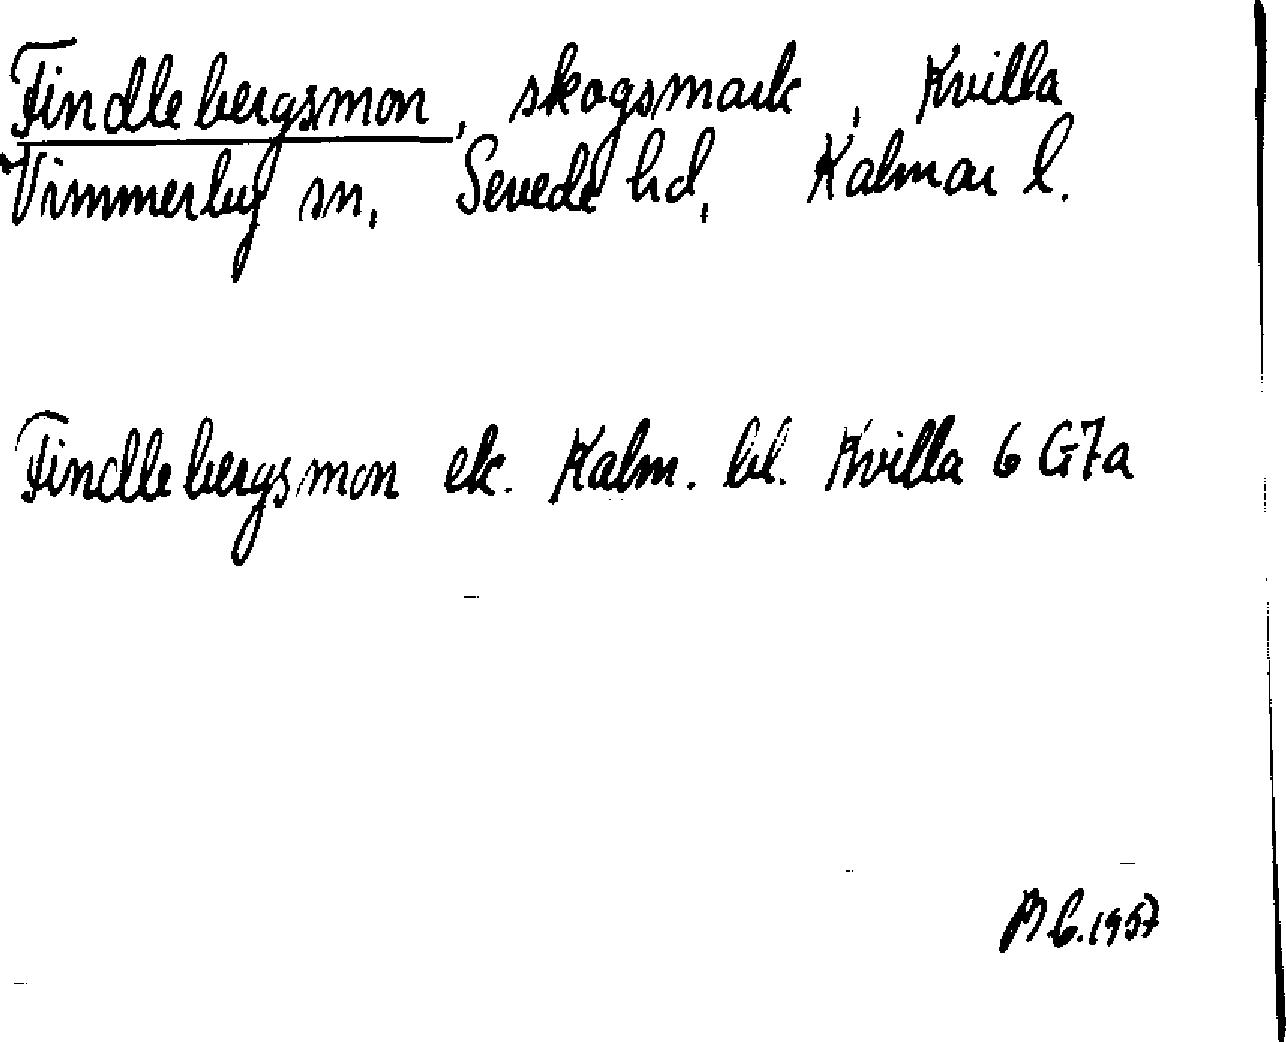 Findlebergsmon, skogsmark, Kvilla
Vimmerby sn, Sevede hd, Kalmar l.
Findlebergsmon ek. Kalm. bl. Kvilla 6 G7a
1957